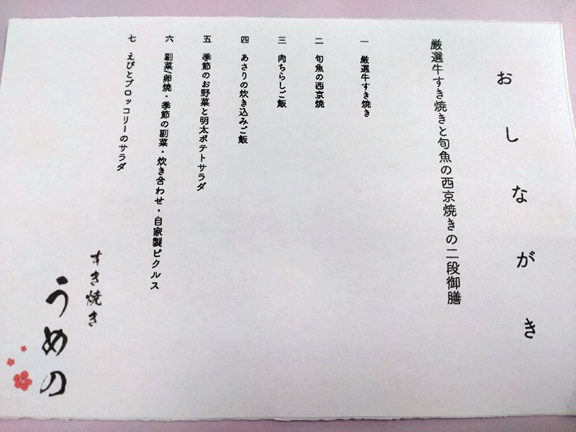 おしながき
厳選牛すき焼きと旬魚の西京焼きの二段御膳
一 厳選牛すき焼き
二 旬魚の西京焼
三 肉ちらしご飯
四 あさりの炊き込みご飯
五 季節のお野菜と明太ポテトサラダ
六 副菜（卵焼・季節の副菜・炊き合わせ・自家製ピクルス
七 えびとブロッコリーのサラダ
すき焼き
うめの